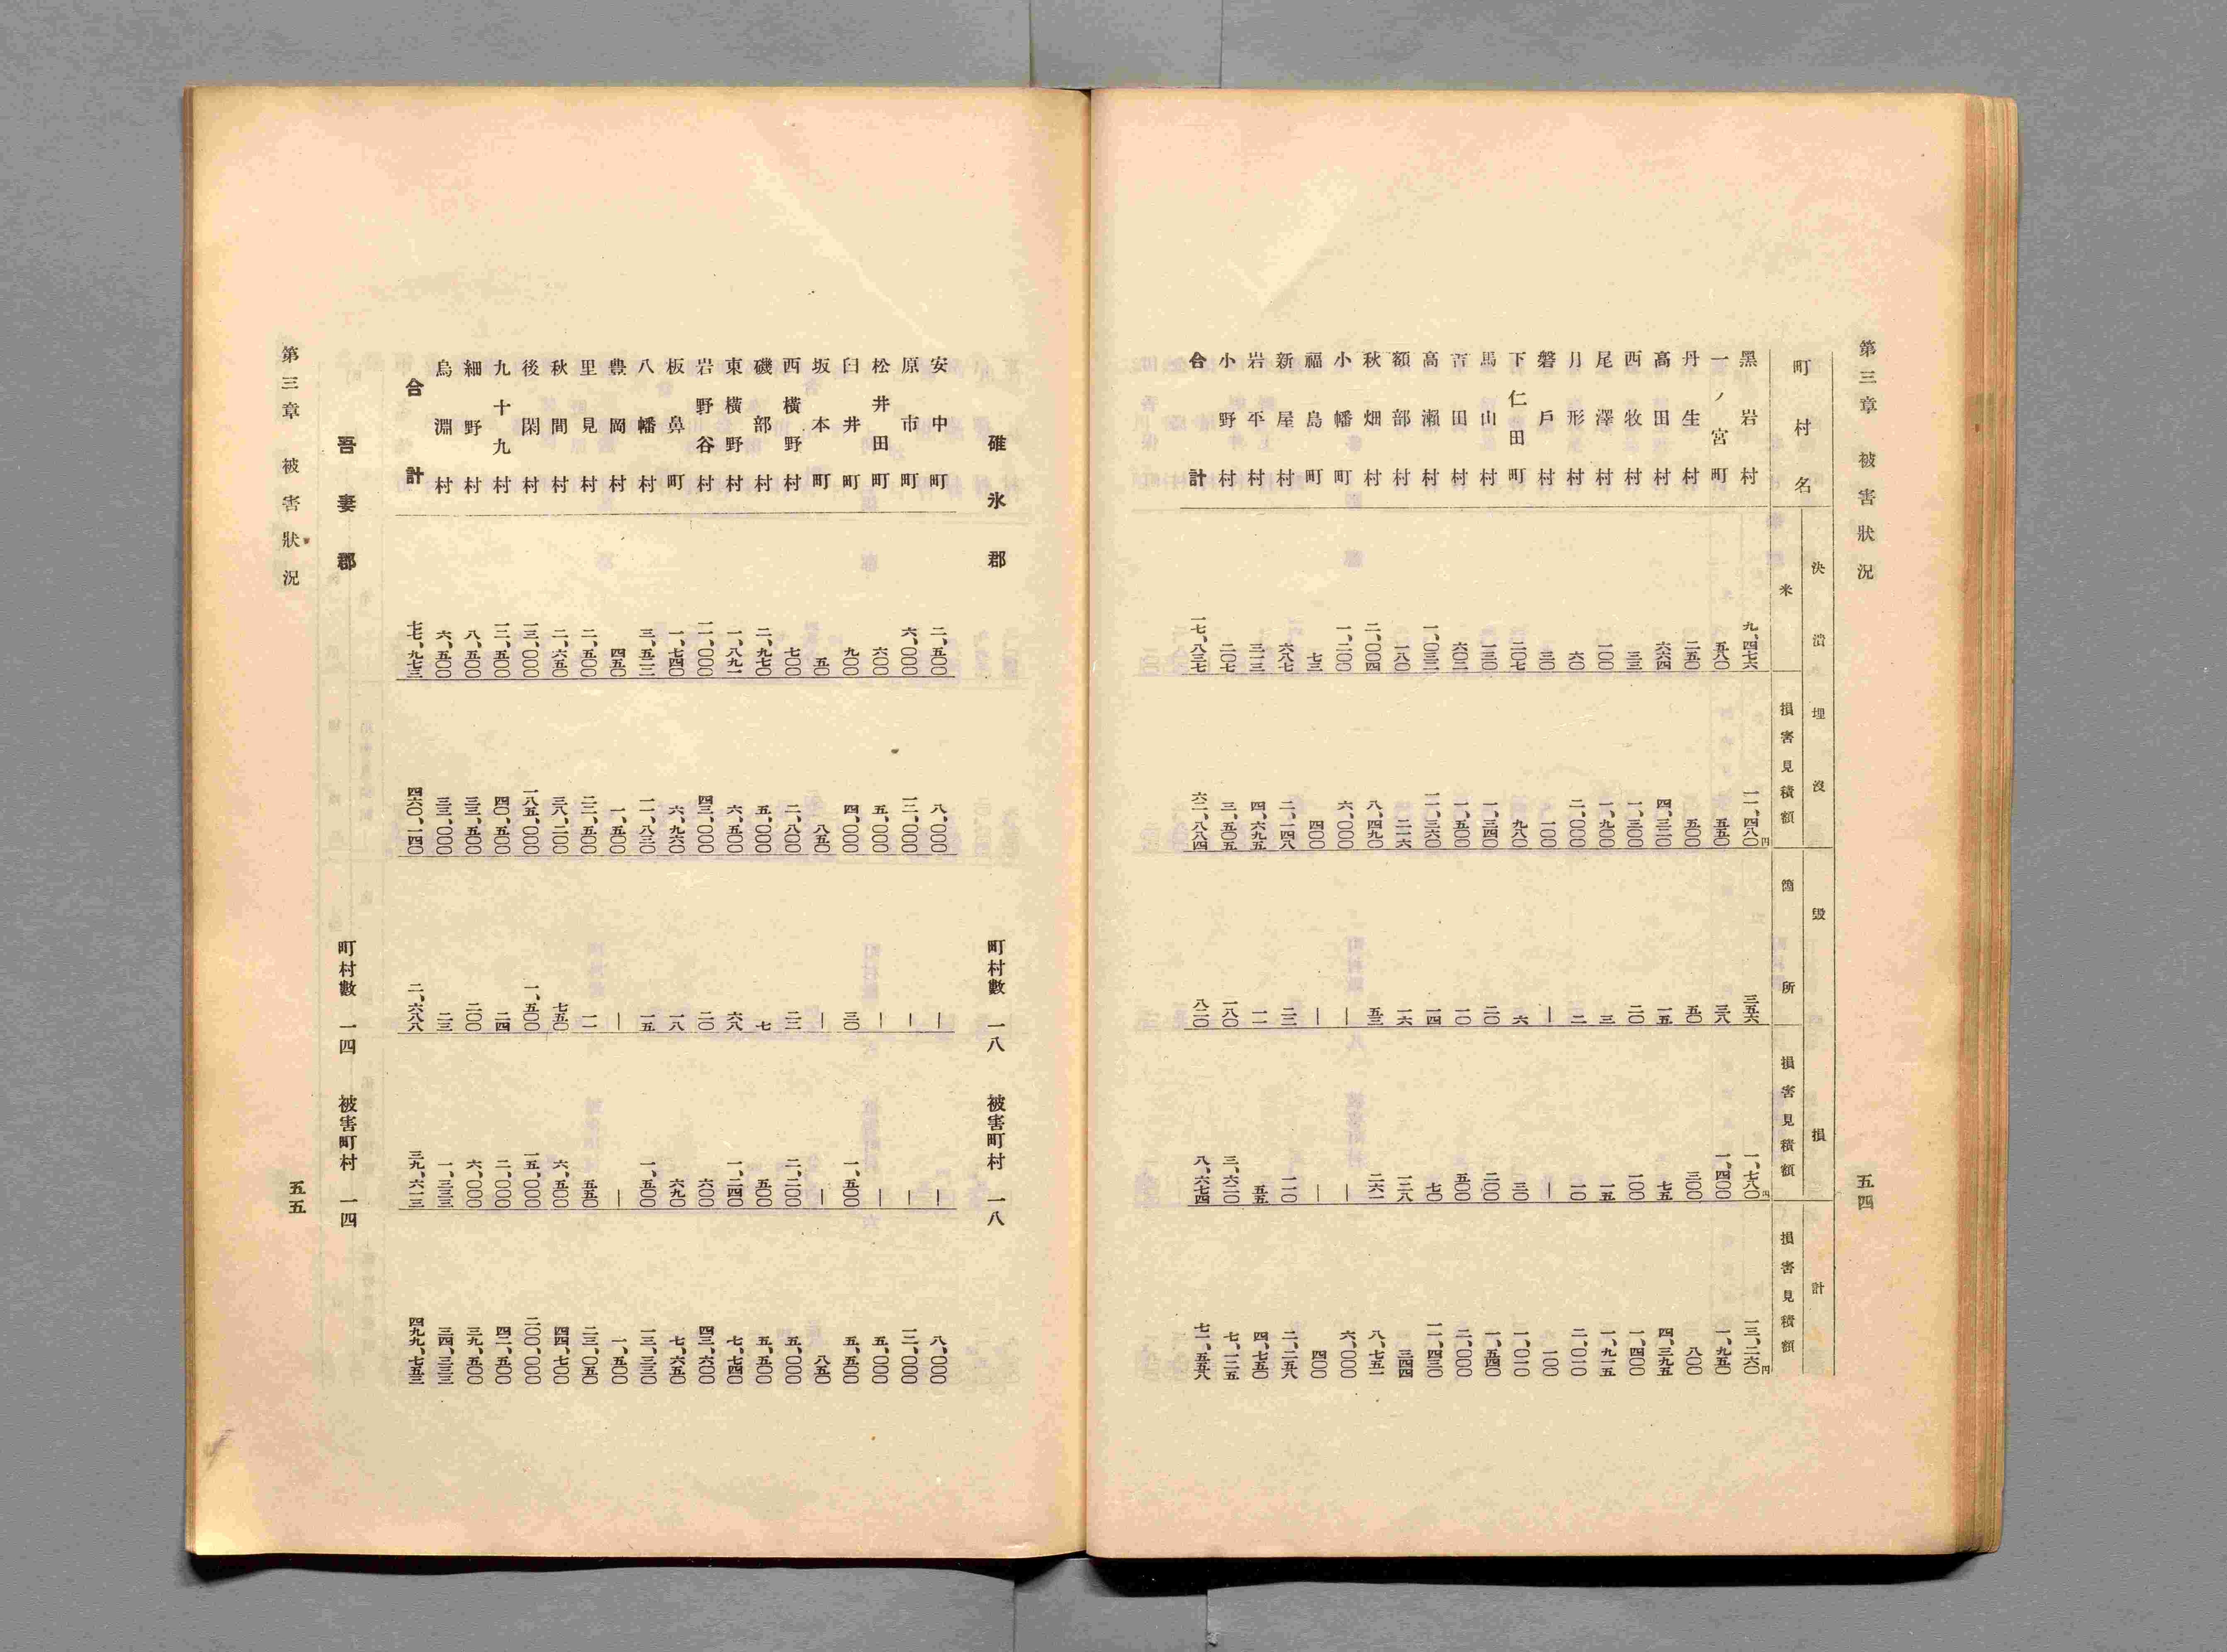 第三章 被害狀況 五四
決潰埋沒 毀損 計
町村名 米 損害見積額 箇所 損害見積額 損害見積額
黑岩村 九、四七六 一一、四八〇円 三五六 一、七八〇円 一三、二六〇円
一ノ宮町 五八〇 五五〇 三八 一、四〇〇 一、九五〇
丹生村 二五〇 五〇〇 五〇 三〇〇 八〇〇
高田村 六六四 四、三二〇 一五 七五 四、三九五
西牧村 三三 一、三〇〇 二〇 一〇〇 一、四〇〇
尾澤村 一〇〇 一、九〇〇 三 一五 一、九一五
月形村 六〇 二、〇〇〇 二 一〇 二、〇一〇
磐戶村 三〇 一〇〇 ― ― 一〇〇
下仁田町 二〇七 九八〇 六 三〇 一、〇一〇
馬山村 一三〇 一、三四〇 二〇 二〇〇 一、五四〇
吉田村 六〇二 一、五〇〇 一〇 五〇〇 二、〇〇〇
高瀨村 一、〇三二 一一、三六〇 一四 七〇 一一、四三〇
額部村 一八〇 二一六 一六 一二八 三四四
秋畑村 二、〇〇四 八、四九〇 五三 二六一 八、七五一
小幡町 一、二〇〇 六、〇〇〇 ― ― 六、〇〇〇
福島町 七三 四〇〇 ― ― 四〇〇
新屋村 六八七 二、一四八 二三 一一〇 二、二五八
岩平村 三一三 四、六九五 一一 五五 四、七五〇
小野村 二〇七 三、五〇五 一八〇 三、六二〇 七、一二五
合計 一七、八三七 六二、八八四 八二〇 八、六七四 七一、五五八
碓氷郡 町村數 一八 被害町村 一八
安中町 二、五〇〇 八、〇〇〇 ― ― 八、〇〇〇
原市町 六、〇〇〇 一二、〇〇〇 ― ― 一二、〇〇〇
松井田町 六〇〇 五、〇〇〇 ― ― 五、〇〇〇
臼井町 九〇〇 四、〇〇〇 三〇 一、五〇〇 五、五〇〇
坂本町 五〇 八五〇 ― ― 八五〇
西橫野村 七〇〇 二、八〇〇 二二 二、二〇〇 五、〇〇〇
磯部村 二、九七〇 五、〇〇〇 七 五〇〇 五、五〇〇
東橫野村 一、八九一 六、五〇〇 六八 一、二四〇 七、七四〇
岩野谷村 一一、〇〇〇 四三、〇〇〇 二〇 六〇〇 四三、六〇〇
板鼻町 一、七四〇 六、九六〇 一八 六九〇 七、六五〇
八幡村 三、五二二 一一、八三〇 一五 一、五〇〇 一三、三三〇
豊岡村 四五〇 一、五〇〇 ― ― 一、五〇〇
里見村 二、五〇〇 二二、五〇〇 一一 五五〇 二三、〇五〇
秋間村 二、六五〇 三八、二〇〇 七五〇 六、五〇〇 四四、七〇〇
後閑村 一三、〇〇〇 一八五、〇〇〇 一、五〇〇 一五、〇〇〇 二〇〇、〇〇〇
九十九村 一二、五〇〇 四〇、五〇〇 二四 二、〇〇〇 四二、五〇〇
細野村 八、五〇〇 三三、五〇〇 二〇〇 六、〇〇〇 三九、五〇〇
烏淵村 六、五〇〇 三三、〇〇〇 二三 一、三三三 三四、三三三
合計 七七、九七三 四六〇、一四〇 二、六八八 三九、六一三 四九九、七五三
吾妻郡 町村數 一四 被害町村 一四
第三章 被害狀況 五五